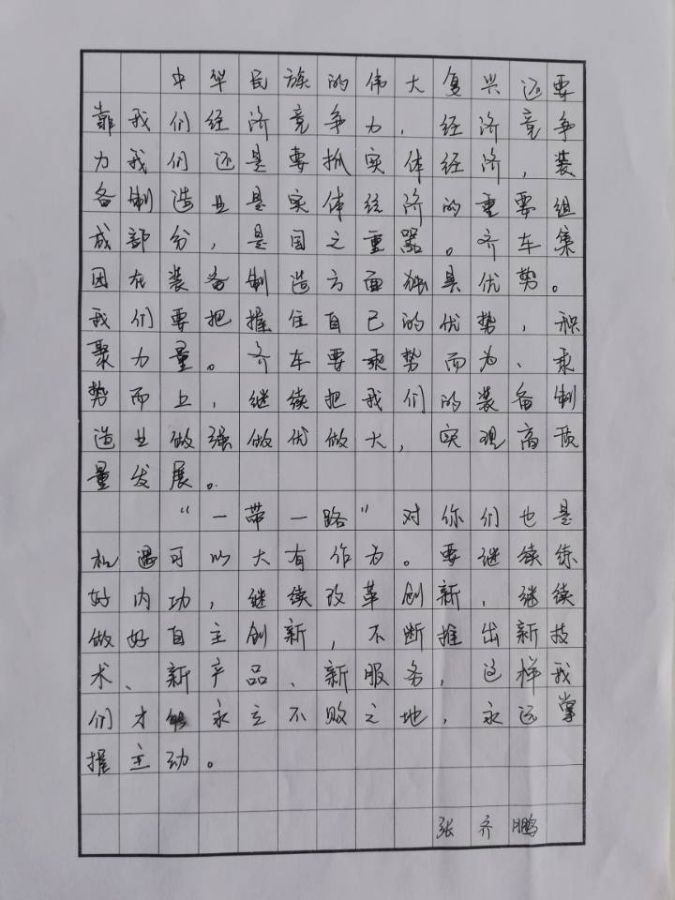 中华民族的伟大复兴还要
靠我们经济竞争力，经济竞争
力我们还是要抓实体经济，装
备制造业是实体经济的重要组
成部分，是国之重器。齐车集
团在装备制造方面独具优势。
我们要把握住自己的优势，积
聚力量。齐车要乘势而为、乘
势而上，继续把我们的装备制
造业做强做优做大，实现高质
量发展。
“一带一路”对你们也是
机遇可以大有作为。要继续练
好内功，继续改革创新，继续
做好自主创新，不断推出新技
术、新产品、新服务，这样我
们才能永立不败之地，永远掌
握主动。
张齐鹏